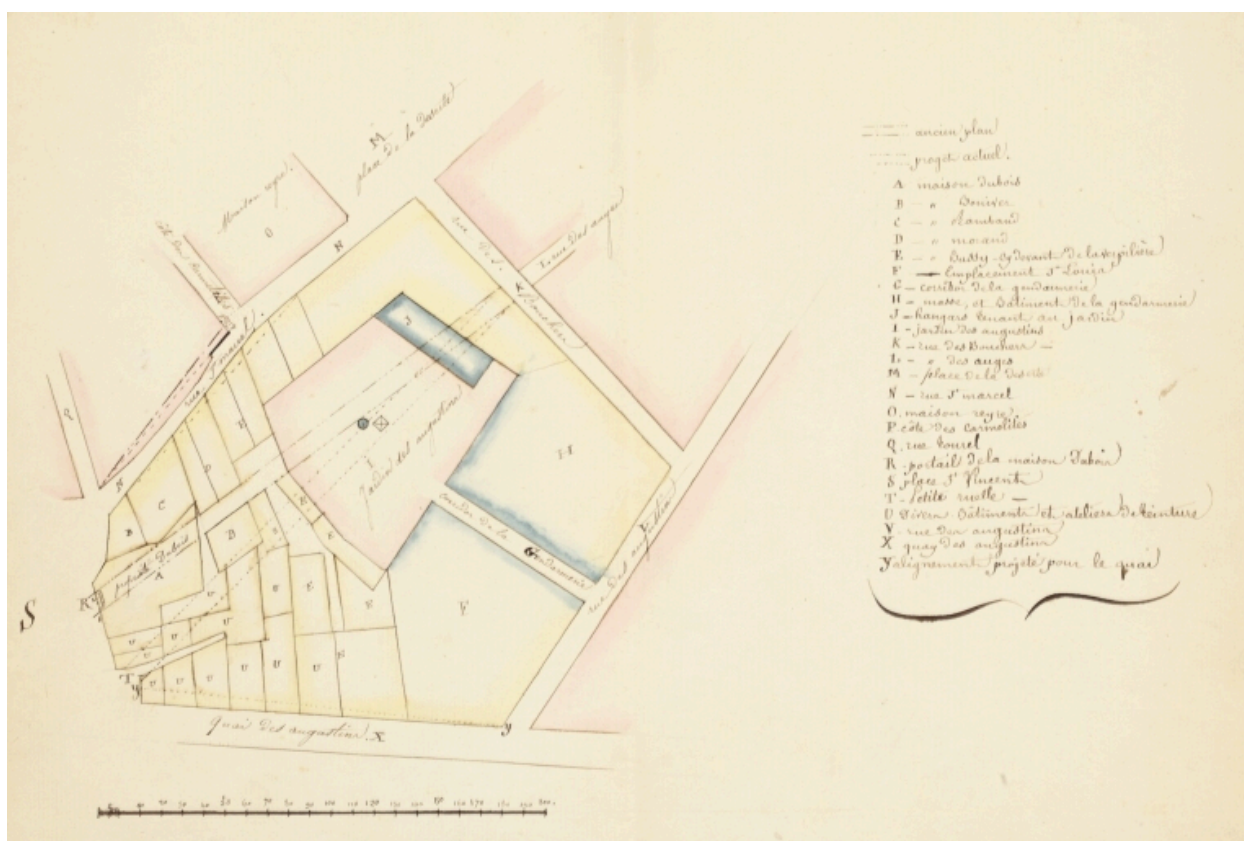 M
place de la Deserte
Maison reyre
O
N
rue des Bouchers
L. rue des anges
K
J
Q
rue St marcel
N
E
D
I
Jardin des augustins
H
C
B
B
A
R
S
E
E
E
E
F
corridor de la Gendarmerie
G
rue des augustins
V
U
U
U
U
U
U
U
U
U
U
T
y
y
Quai des augustins. X
ancien plan
projet actuel.
A maison Dubois
B - " Boniver
C - " Rambaud
D - " morand
E - " Bussy cydevant De la verpilière
F - Emplacement St Louis
G - corridor de la gendarmerie
H - masse, et Batiment de la gendarmerie
J - hangars tenant au jardin
I - jardin des augustins
K - rue des Bouchers -
L - " des anges
M - place de la Deserte
N - rue St marcel
O. maison reyre
P côte des carmelites
Q. rue tourel
R - portail de la maison Dubois
S place St Vincent
T - Petite ruelle -
U Divers Bâtiments et ateliers De teinture
V - rue des augustins
X quay des augustins
y alignement projeté pour le quai